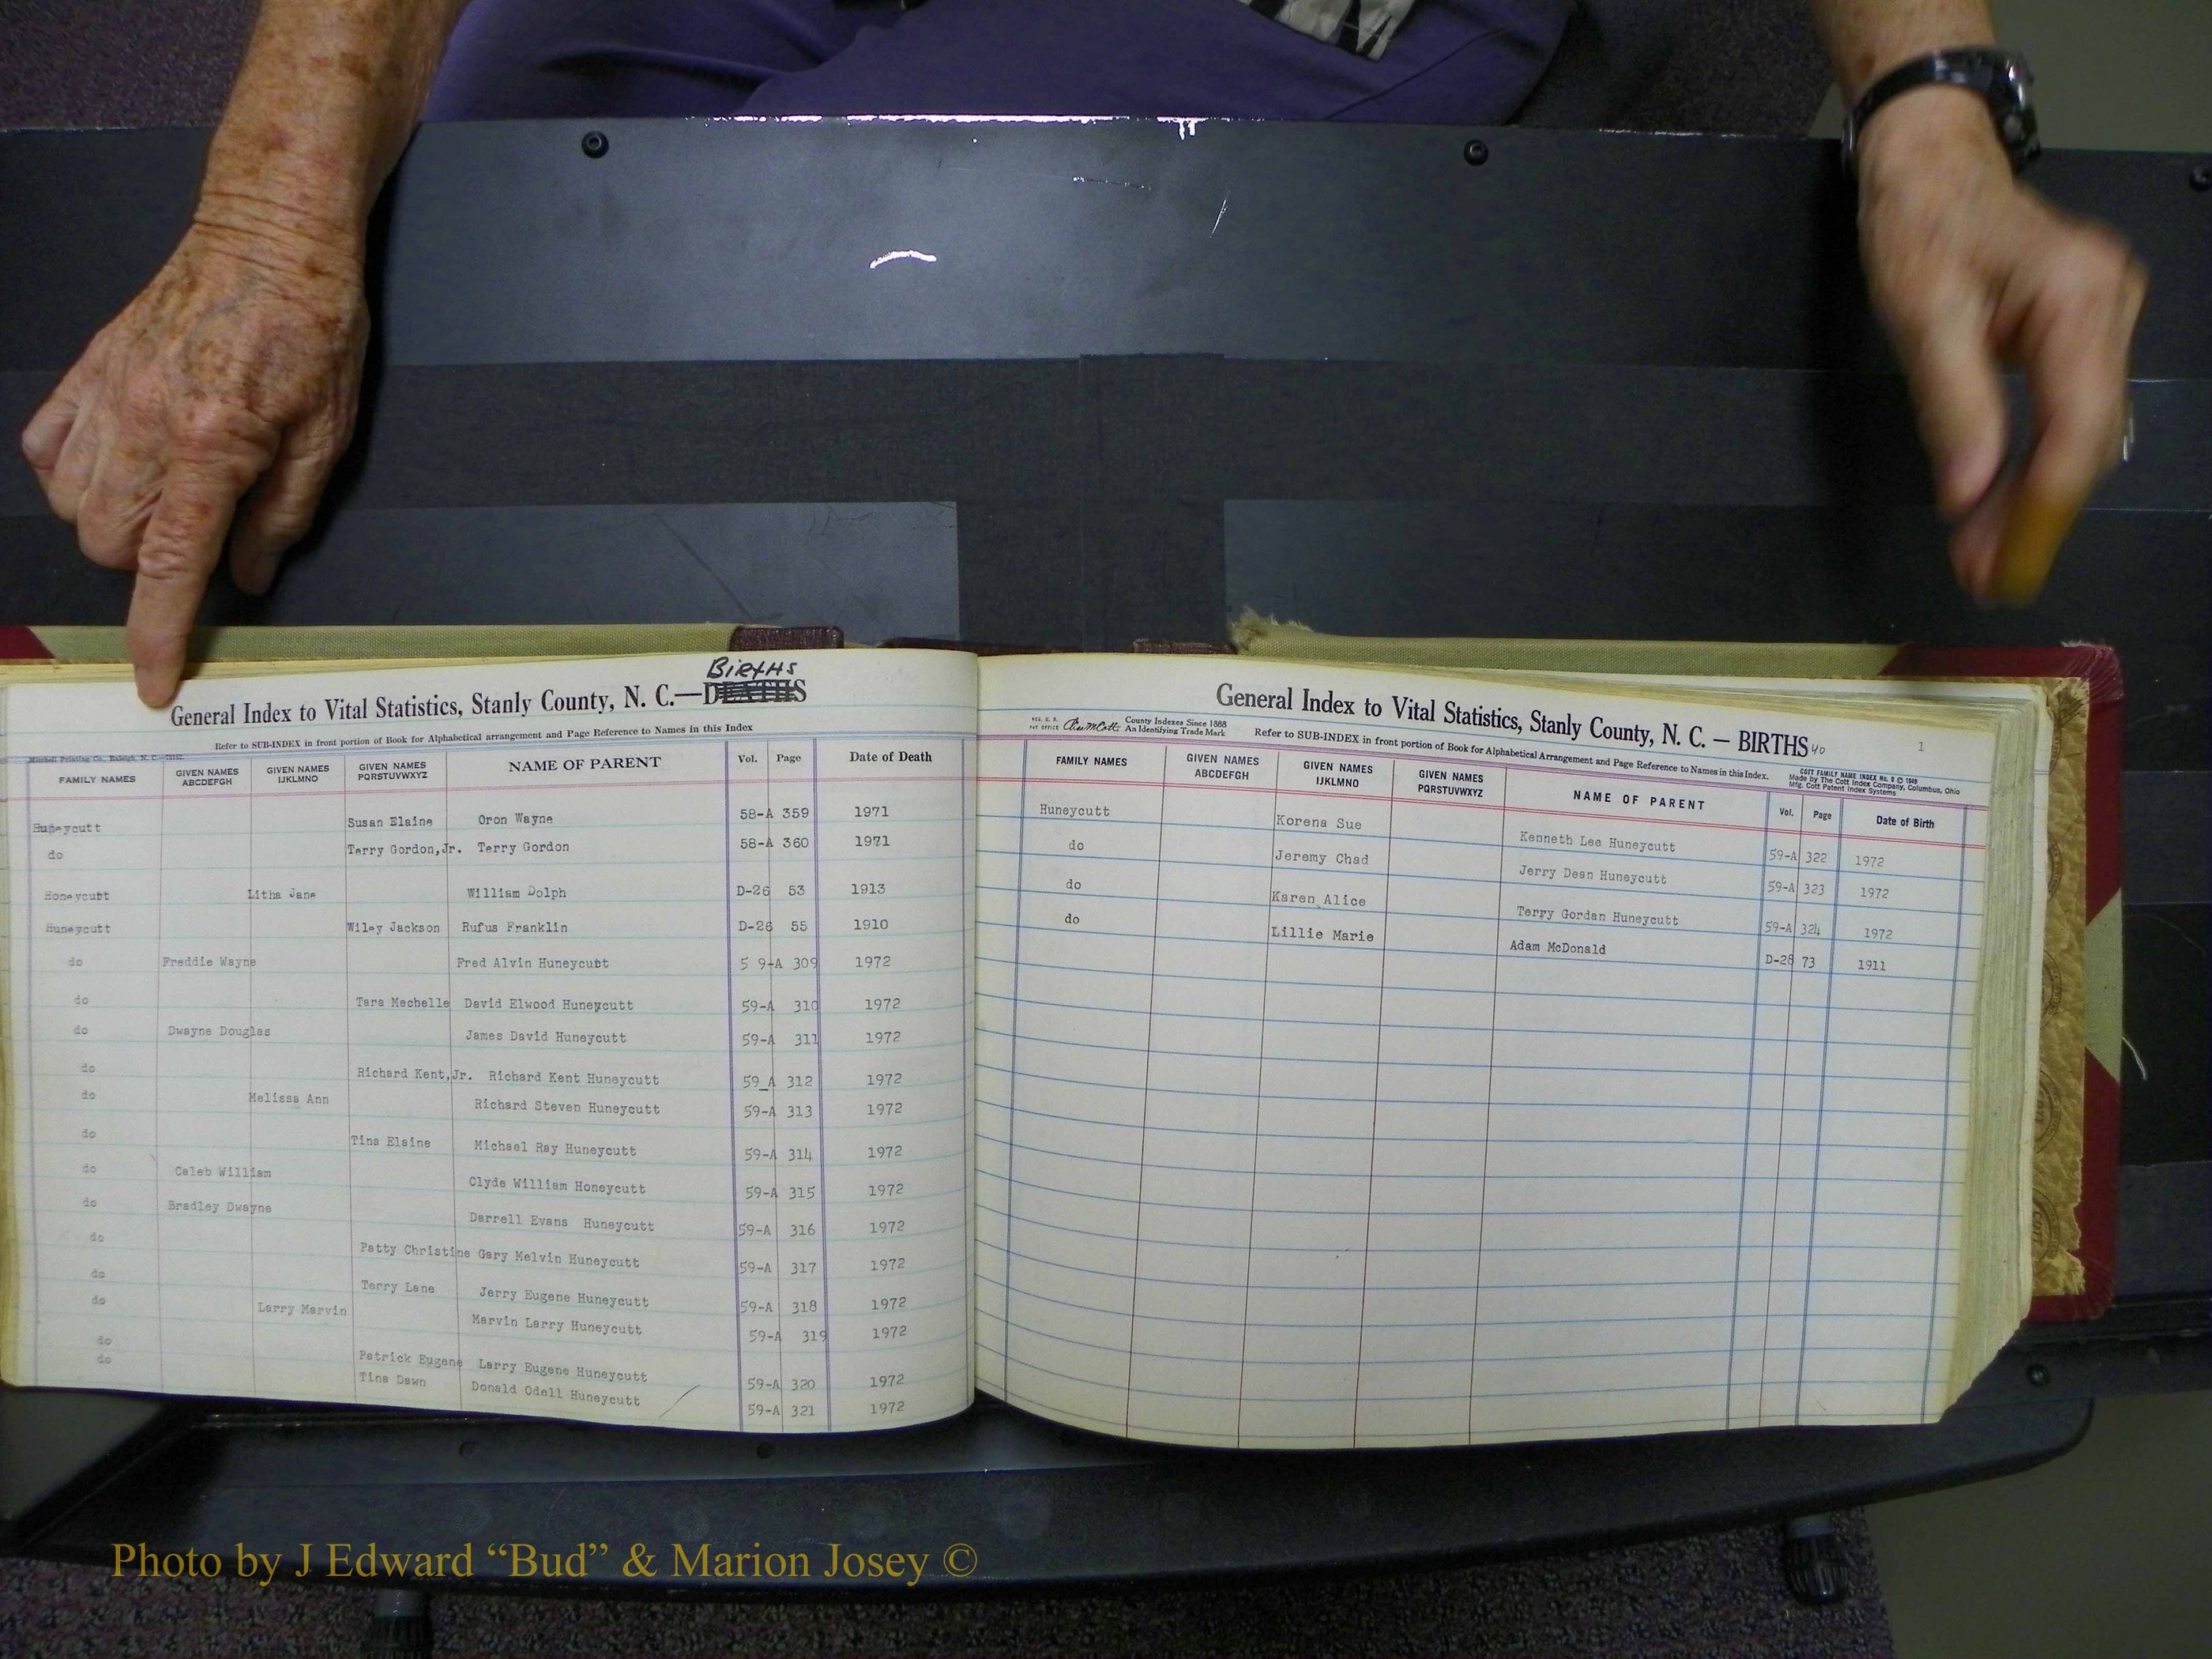 BirtHs
General Index to Vital Statistics, Stanly County, N. C.—DEATHS
Refer to SUB-INDEX in front portion of Book for Alphabetical arrangement and Page Reference to Names in this Index
Mitchell Printing Co., Raleigh, N. C.
FAMILY NAMES GIVEN NAMES ABCDEFGH GIVEN NAMES IJKLMNO GIVEN NAMES PQRSTUVWXYZ NAME OF PARENT Vol. Page Date of Death
Huneycutt Susan Elaine Oron Wayne 58-A 359 1971
do Terry Gordon,Jr. Terry Gordon 58-A 360 1971
Honeycutt Litha Jane William Dolph D-26 53 1913
Huneycutt Wiley Jackson Rufus Franklin D-26 55 1910
do Freddie Wayne Fred Alvin Huneycutt 5 9-A 309 1972
do Tara Mechelle David Elwood Huneycutt 59-A 310 1972
do Dwayne Douglas James David Huneycutt 59-A 311 1972
do Richard Kent,Jr. Richard Kent Huneycutt 59_A 312 1972
do Melissa Ann Richard Steven Huneycutt 59-A 313 1972
do Tina Elaine Michael Ray Huneycutt 59-A 314 1972
do Caleb William Clyde William Honeycutt 59-A 315 1972
do Bradley Dwayne Darrell Evans Huneycutt 59-A 316 1972
do Patty Christine Gary Melvin Huneycutt 59-A 317 1972
do Terry Lane Jerry Eugene Huneycutt 59-A 318 1972
do Larry Marvin Marvin Larry Huneycutt 59-A 319 1972
do Patrick Eugene Larry Eugene Huneycutt 59-A 320 1972
do Tina Dawn Donald Odell Huneycutt 59-A 321 1972
General Index to Vital Statistics, Stanly County, N. C. — BIRTHS 40 1
REG. U. S. PAT OFFICE County Indexes Since 1888 An Identifying Trade Mark
Refer to SUB-INDEX in front portion of Book for Alphabetical Arrangement and Page Reference to Names in this Index.
COTT FAMILY NAME INDEX No. 8 © 1949
Made by The Cott Index Company, Columbus, Ohio
Mfg. Cott Patent Index Systems
FAMILY NAMES GIVEN NAMES ABCDEFGH GIVEN NAMES IJKLMNO GIVEN NAMES PQRSTUVWXYZ NAME OF PARENT Vol. Page Date of Birth
Huneycutt Korena Sue Kenneth Lee Huneycutt 59-A 322 1972
do Jeremy Chad Jerry Dean Huneycutt 59-A 323 1972
do Karen Alice Terry Gordan Huneycutt 59-A 324 1972
do Lillie Marie Adam McDonald D-28 73 1911
Photo by J Edward “Bud” & Marion Josey ©